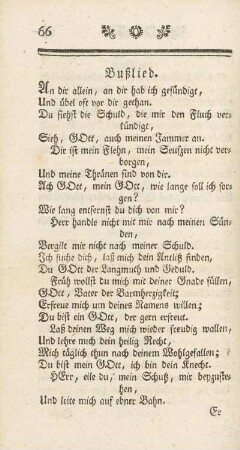 66
Bußlied.
An dir allein, an dir hab ich gesündigt,
Und übel oft vor dir gethan.
Du siehst die Schuld, die mir den Fluch ver-
kündigt,
Sieh, GOtt, auch meinen Jammer an.
Dir ist mein Flehn, mein Seufzen nicht ver-
borgen,
Und meine Thränen sind von dir.
Ach GOtt, mein GOtt, wie lange soll ich sor-
gen?
Wie lang entfernst du dich von mir?
Herr handle nicht mit mir nach meinen Sün-
den,
Vergilt mir nicht nach meiner Schuld.
Ich suche dich, laß mich dein Antlitz finden,
Du GOtt der Langmuth und Geduld.
Früh wollst du mich mit deiner Gnade füllen,
GOtt, Vater der Barmherzigkeit;
Erfreue mich um deines Namens willen;
Du bist ein GOtt, der gern erfreut.
Laß deinen Weg mich wieder freudig wallen,
Und lehre mich dein heilig Recht,
Mich täglich thun nach deinem Wohlgefallen;
Du bist mein GOtt, ich bin dein Knecht.
HErr, eile du, mein Schutz, mir beyzuste-
hen,
Und leite mich auf ebner Bahn.
Er